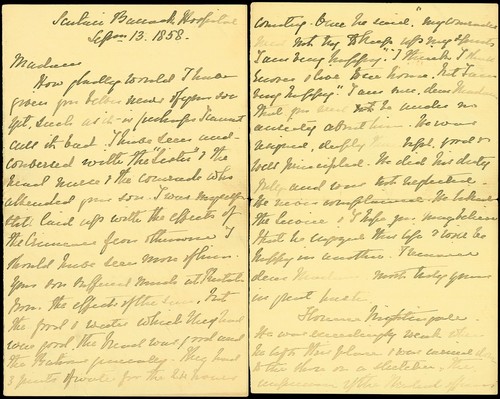 Barrack Hospital
13. 1858.
Madam
How gladly would I have
given you better news of your son
yet, such as it is, perhaps I cannot
call it bad. I have seen and
conversed with the "Sister" & the
head nurse & the comrade who
attended your son. I was myself
laid up with the effects of
the Crimean fever otherwise I
should have seen more of him.
Your son suffered much at
from the effects of the But
the food & water which they had
were good the bread was good and
the Rations generally. They had
3 pints of water for the 24 hours
country. Once he said, "my comrades
not try to keep up my spirits,
I am very happy." "I think I should
recover if I were home. But I am
very happy". I am sure, dear
that you need not be under no
anxiety about him. He was
resigned, good &
well principled. He did his duty
and was not neglected.
He never complained. He
the & I hope you may believe
that he enjoyed this life & will be
happy in another. I remain
dear most truly yours
in great haste
Florence Nightingale.
He was exceedingly weak
he left the place & was carried
to the on a stretcher, the
of the Medical officers